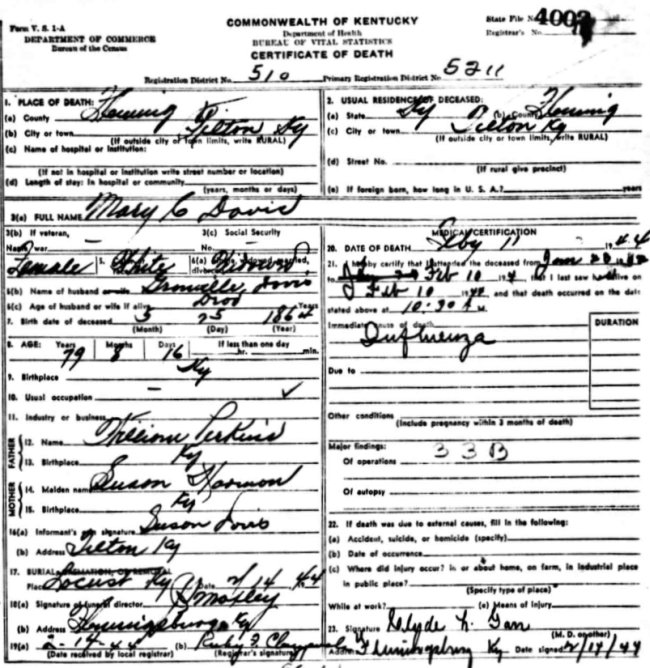 Form V. S. 1-A
DEPARTMENT OF COMMERCE
Bureau of the Census
COMMONWEALTH OF KENTUCKY
Department of Health
BUREAU OF VITAL STATISTICS
CERTIFICATE OF DEATH
State File No. 4002
Registrar's No.
Registration District No. 510 Primary Registration District No. 5211
1. PLACE OF DEATH:
(a) County Fleming
(b) City or town Tilton Ky
(If outside city or town limits, write RURAL)
(c) Name of hospital or institution:
(If not in hospital or institution write street number or location)
(d) Length of stay: In hospital or community
(years, months or days)
2. USUAL RESIDENCE OF DECEASED:
(a) State Ky (b) County Fleming
(c) City or town Tilton Ky
(If outside city or town limits, write RURAL)
(d) Street No.
(If rural give precinct)
(e) If foreign born, how long in U. S. A.? years
3(a) FULL NAME Mary C Davis
3(b) If veteran,
Name war —
3(c) Social Security
No. —
Female 5. White 6(a) widowed, married, divorced Widow
6(b) Name of husband or wife Davis
6(c) Age of husband or wife if alive Years
7. Birth date of deceased 25 1864
(Month) (Day) (Year)
8. AGE: Years Months Days If less than one day
79 8 16 hr. min.
9. Birthplace Ky
10. Usual occupation —
11. Industry or business
FATHER
12. Name William Perkins
13. Birthplace Ky
MOTHER
14. Maiden name Susan Harmon
15. Birthplace Ky
16(a) Informant's signature Susan Davis
(b) Address Tilton Ky
17. BURIAL, CREMATION, OR REMOVAL
Place Locust Ky Date 2/14 44
18(a) Signature of funeral director Moxley
(b) Address Flemingsburg Ky
19(a) 2-14-44 (b) Ruby F.
(Date received by local registrar) (Registrar's signature)
MEDICAL CERTIFICATION
20. DATE OF DEATH Feby 11 1944
21. I hereby certify that I attended the deceased from Jan
to Feb 10 194, that I last saw alive on
Feb 10 1944 and that death occurred on the date
stated above at 10:30 m
Immediate cause of death
Influenza
DURATION
Due to
Other conditions
(Include pregnancy within 3 months of death)
Major findings: 33B
Of operations
Of autopsy
22. If death was due to external causes, fill in the following:
(a) Accident, suicide, or homicide (specify)
(b) Date of occurrence
(c) Where did injury occur? in or about home, on farm, in industrial place
in public place?
(Specify type of place)
While at work? (e) Means of injury
23. Signature Clyde L. Garr
(M. D. or other)
Address Flemingsburg Ky Date signed 2/17/44